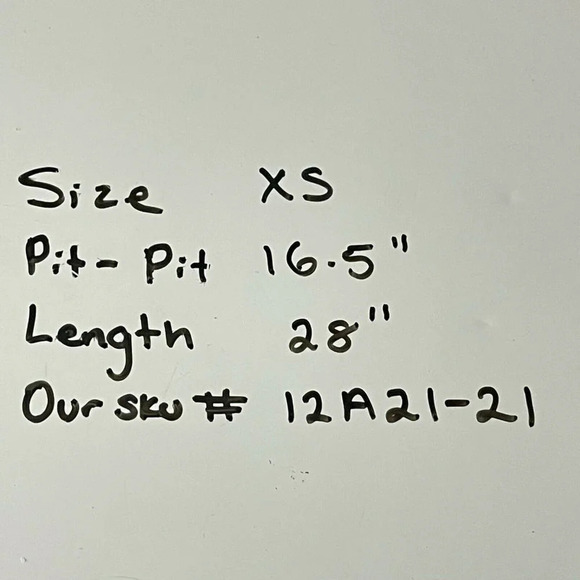 Size XS
Pit - Pit 16.5"
Length 28"
Our sku # 12A21-21